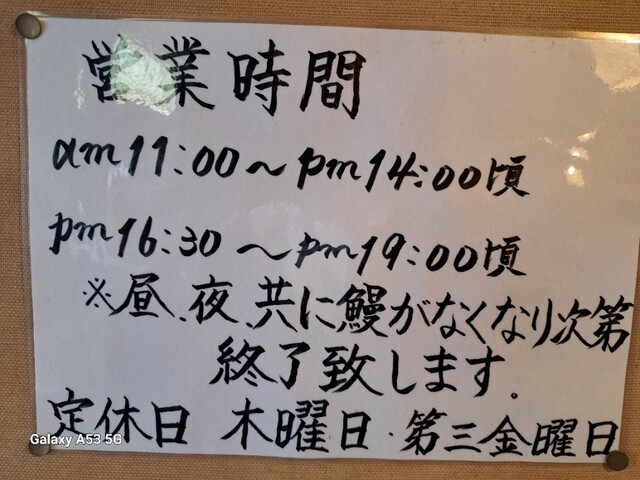 営業時間
am11:00～pm14:00頃
pm16:30～pm19:00頃
※昼、夜、共に鰻がなくなり次第
終了致します。
定休日 木曜日・第三金曜日
Galaxy A53 5G